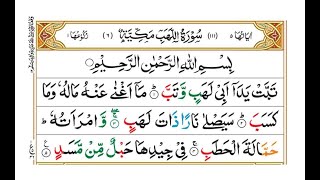 اٰیَاتُهَا ۵ (۱۱۱) سُوْرَةُ اللَّهَبِ مَكِّیَّةٌ (۶) رُكُوْعُهَا ۱
بِسْمِ اللّٰهِ الرَّحْمٰنِ الرَّحِیْمِ
تَبَّتْ یَدَاۤ اَبِیْ لَهَبٍ وَّ تَبَّ ؕ۱ مَاۤ اَغْنٰی عَنْهُ مَالُهٗ وَ مَا
كَسَبَ ؕ۲ سَیَصْلٰی نَارًا ذَاتَ لَهَبٍ ۚۖ۳ وَّ امْرَاَتُهٗ ؕ
حَمَّالَةَ الْحَطَبِ ۚ۴ فِیْ جِیْدِهَا حَبْلٌ مِّنْ مَّسَدٍ ۠۵